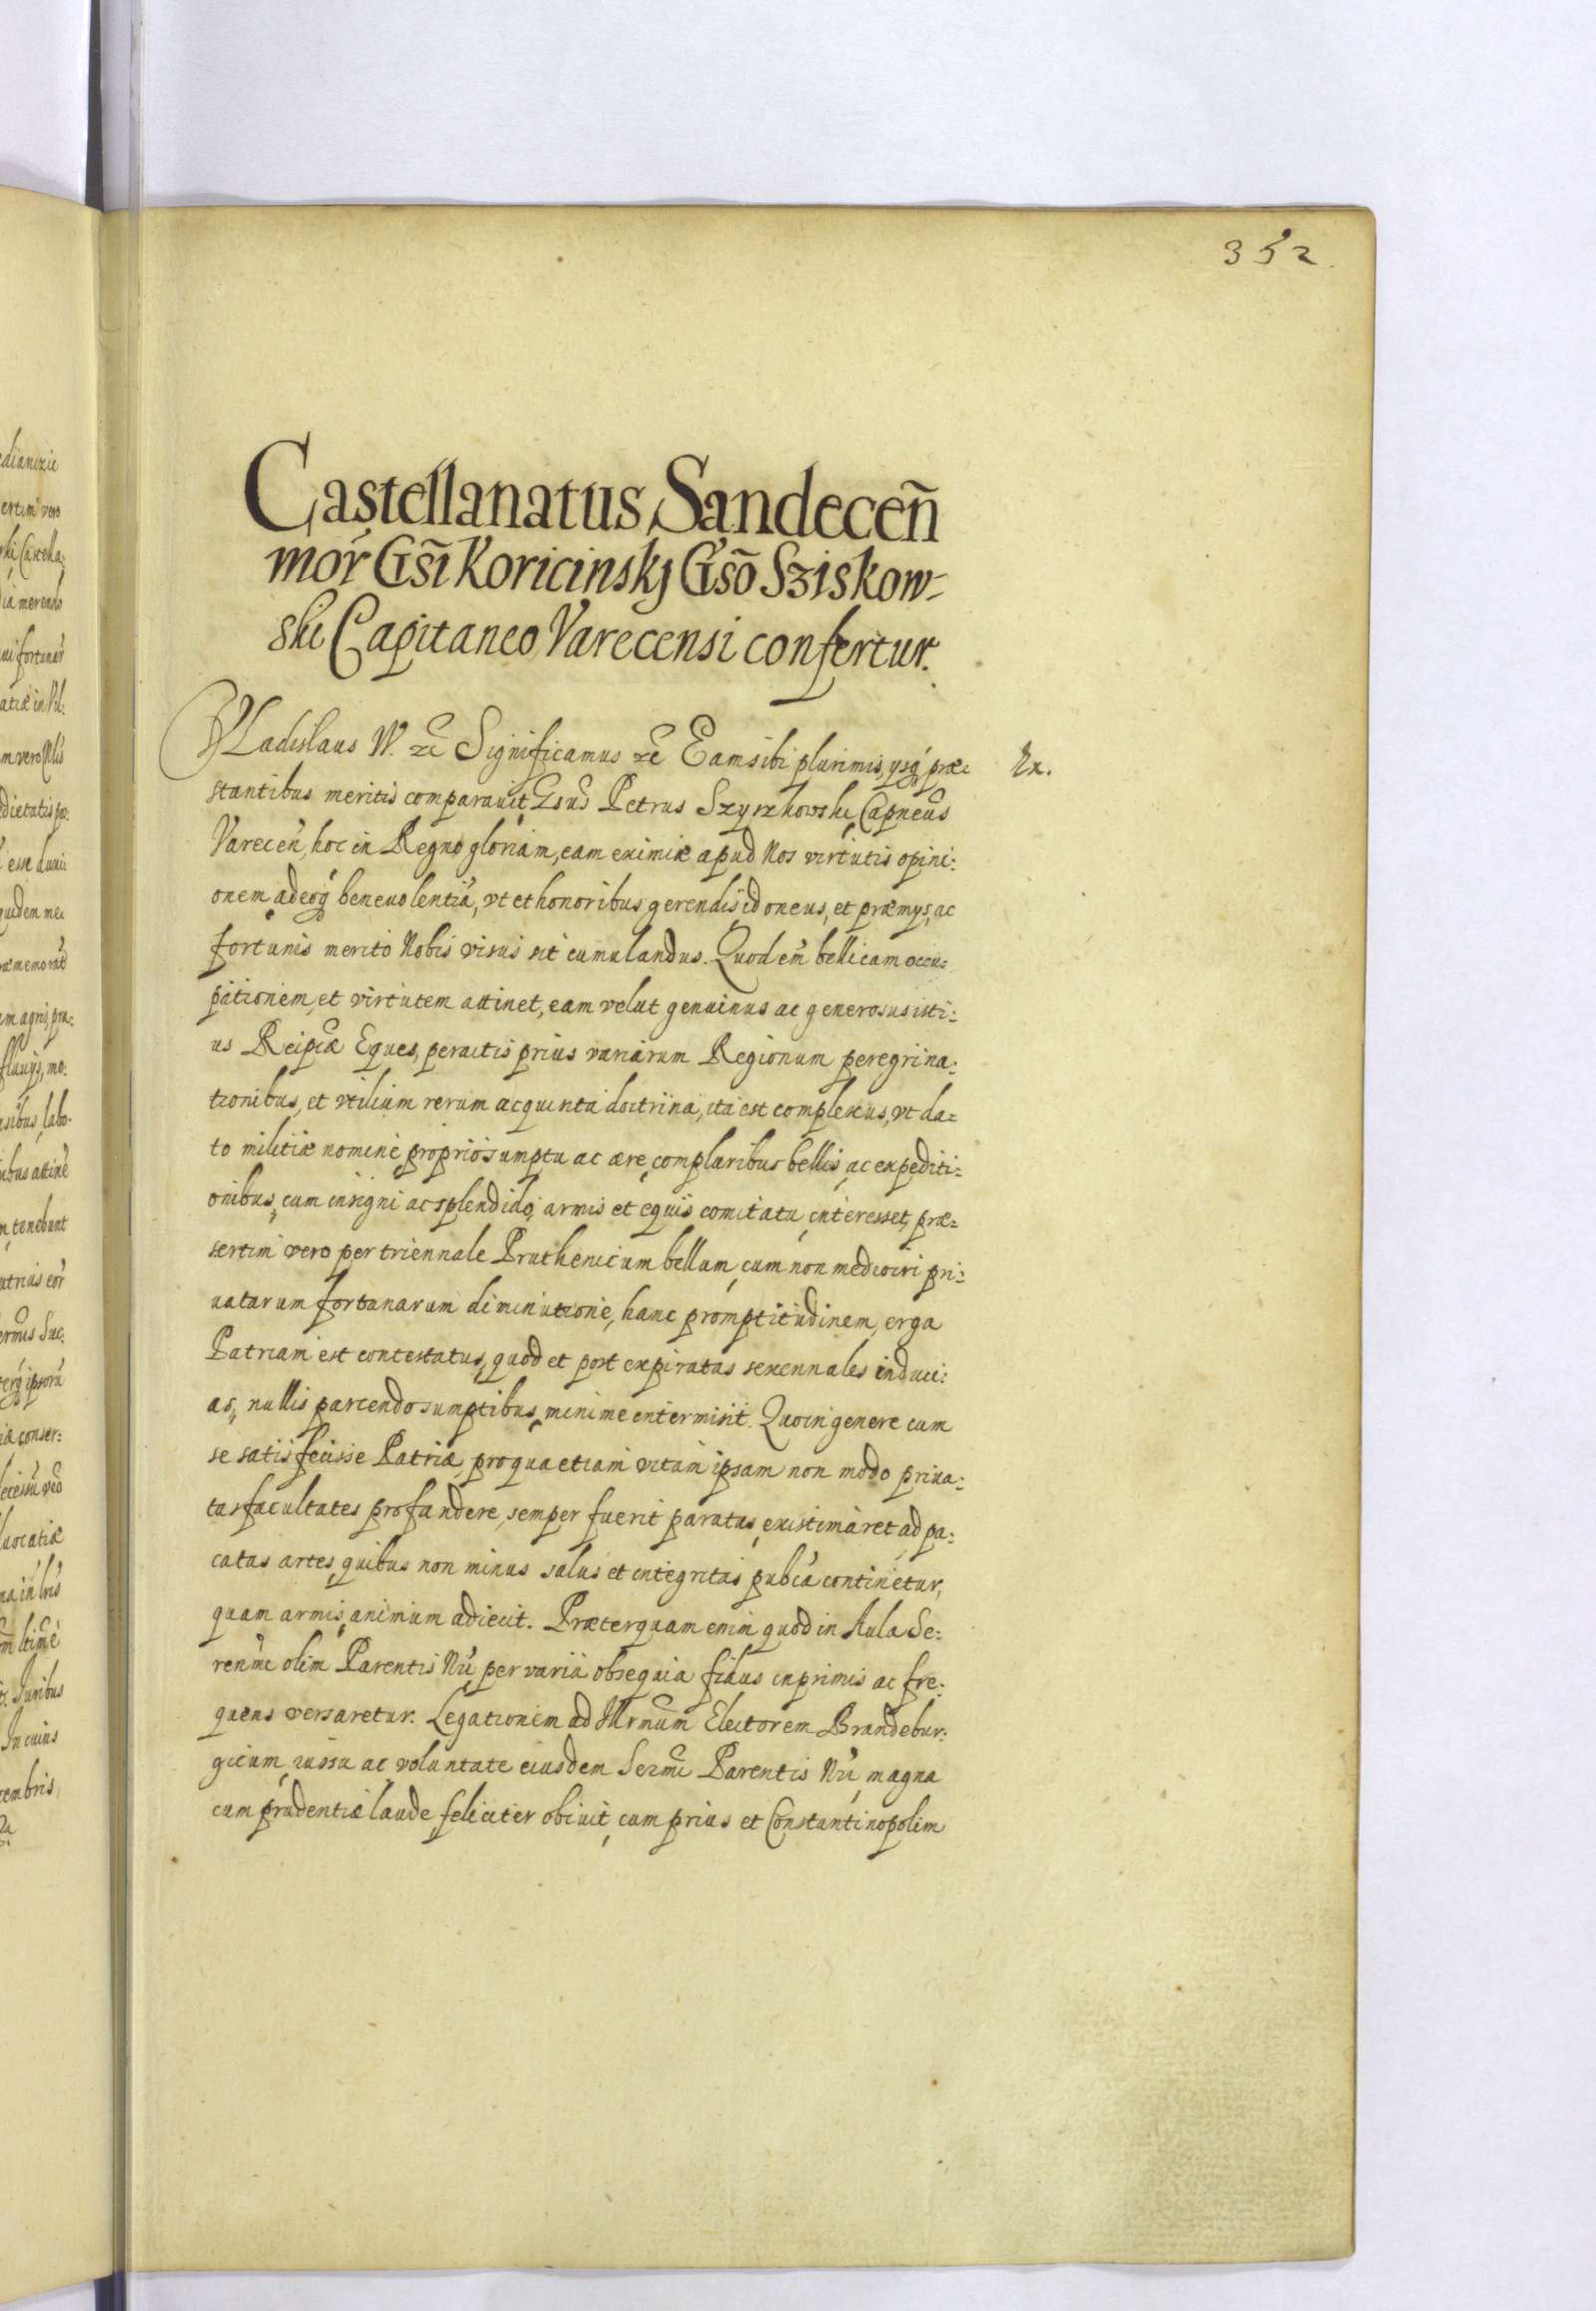 352.
Castellanatus Sandeceñ
mór Gsĩ Koricinskj Gsõ Sziskow-
ski Capitaneo Varecensi confertur.
Vladislaus IV. etc Significamus etc Eam sibi plurimis, ysq́ præ-
Rx.
stantibus meritis comparauit Gsus Petrus Szyszkowski Capneus
Varecen̄, hoc in Regno gloriam, eam eximiæ apud Nos virtutis opini:
onem adeoq́ beneuolentiā, vt et honoribus gerendis idoneus, et præmijs, ac
fortunis merito Nobis visus sit cumulandus. Quod em̄ bellicam occu:
pationem, et virtutem attinet, eam velut genuinus ac generosus isti:
us Reipcæ Eques, peractis prius variarum Regionum peregrina:
tionibus, et vtilium rerum acquisita doctrina, ita est complexus, vt da:
to militiæ nomine, proprio sumptu ac ære, compluribus bellis, ac expediti:
onibus, cum insigni ac splendido, armis et equis comitatu, interesset, præ:
sertim vero per triennale Pruthenicum bellum, cum non mediocri pri:
uatarum fortunarum diminutione, hanc promptitudinem, erga
Patriam est contestatus, quod et post expiratas sexennales induci:
as, nullis parcendo sumptibus, minime intermisit. Quo in genere cum
se satis fecisse Patriæ, pro qua etiam vitam ipsam non modo priua:
tas facultates profundere, semper fuerit paratus, existimaret, ad pa:
catas artes, quibus non minus salus et integritas pubca continetur,
quam armis, animum adiecit. Præterquam enim quod in Aula Se:
renmi olim Parentis Nri, per varia obsequia fidus inprimis ac fre:
quens versaretur. Legationem ad Illrmum Electorem Brandebur:
gicum, iussu ac voluntate eiusdem Sermi Parentis Nri, magna
cum prudentiæ laude feliciter obiuit, cum prius et Constantinopolim